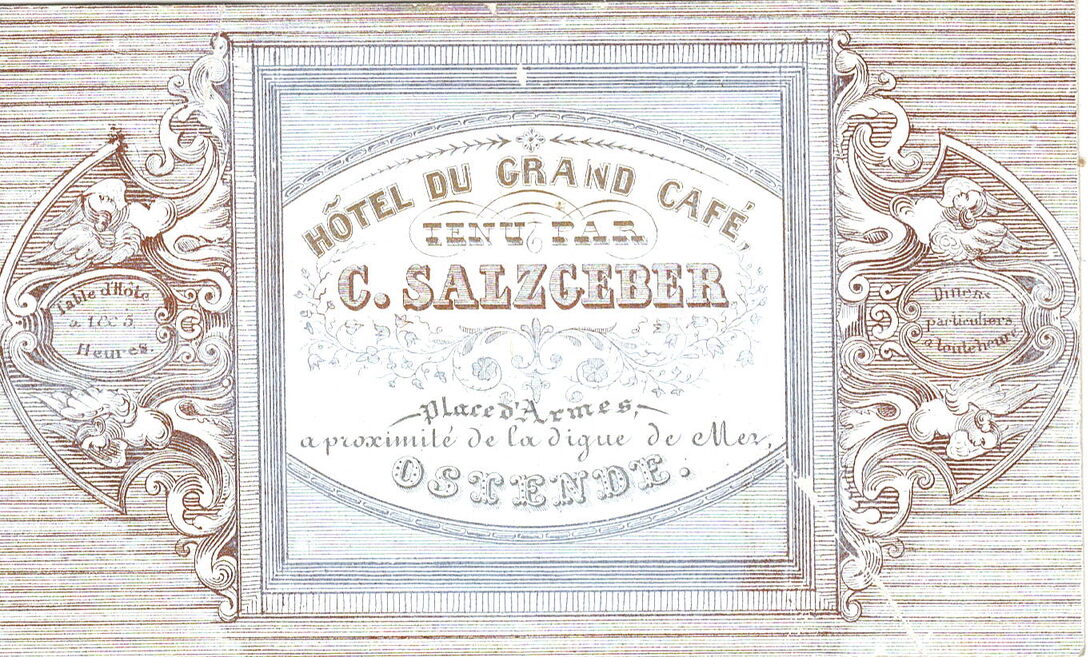 HÔTEL DU GRAND CAFÉ,
TENU PAR
C. SALZGEBER
Place d'Armes,
a proximité de la digue de Mer,
OSTENDE.
Table d'Hôte
à 1 & 5
Heures.
Diners
particuliers
à toute heure